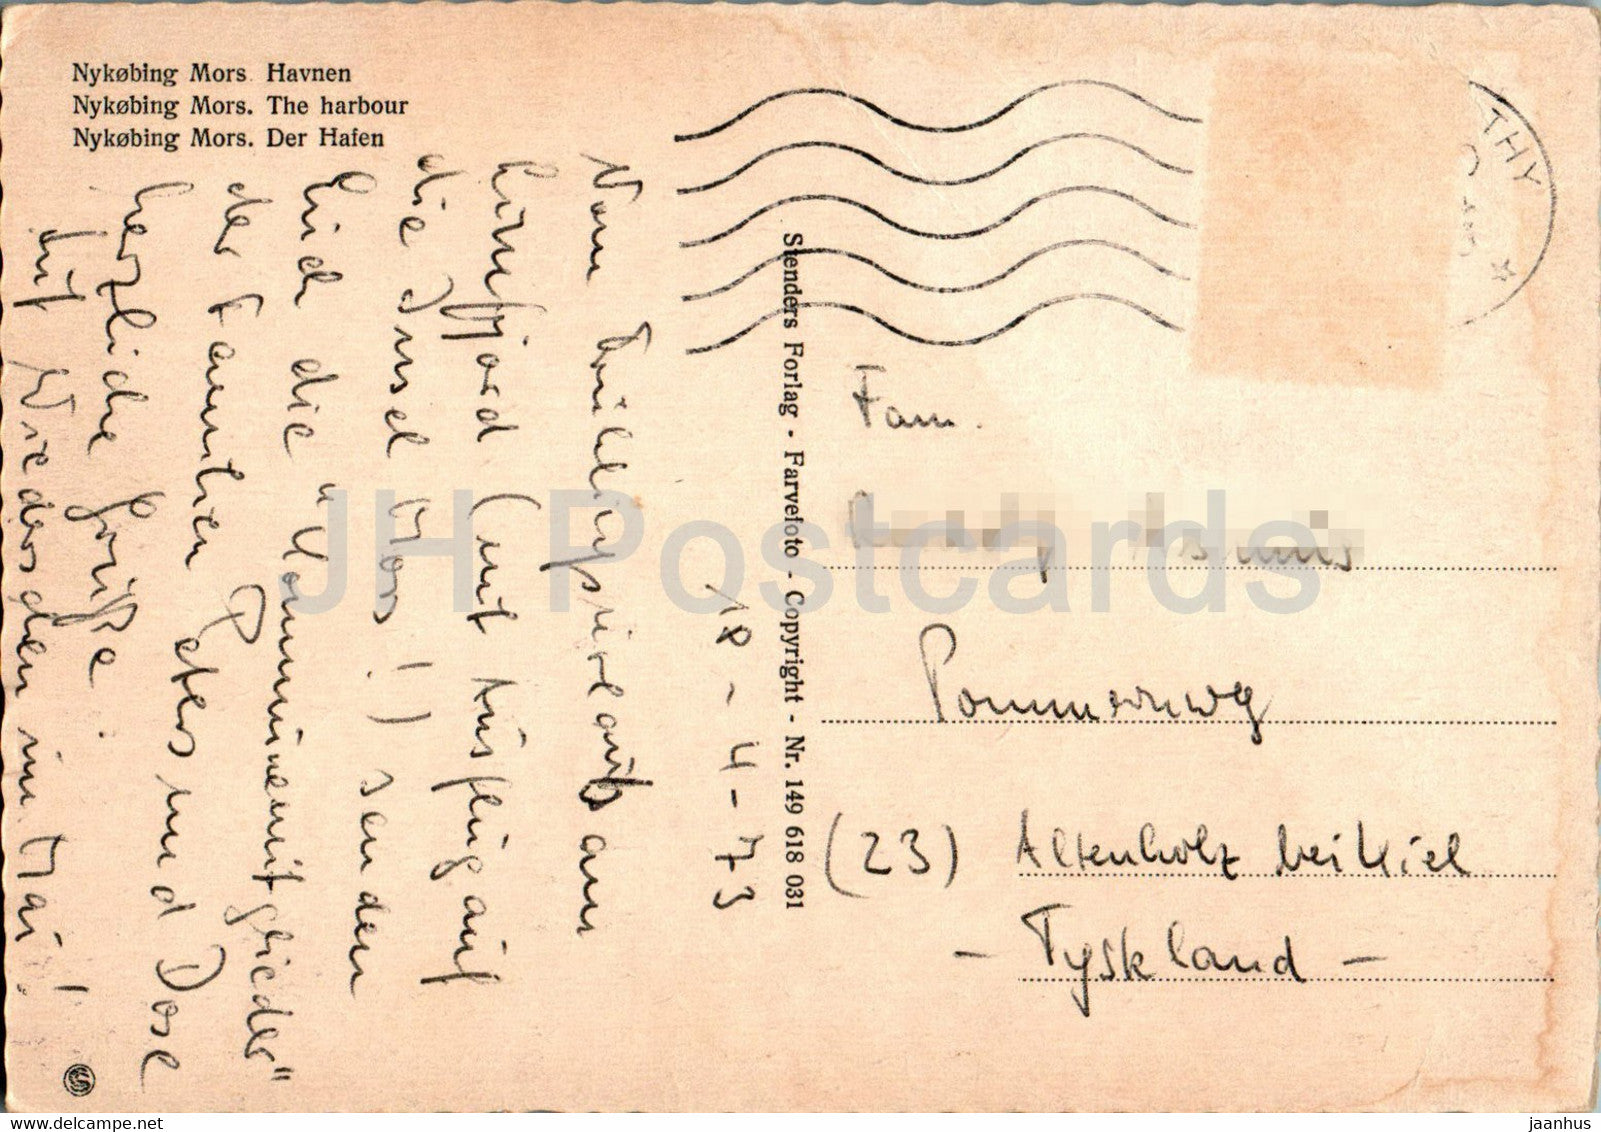 Nykøbing Mors. Havnen
Nykøbing Mors. The harbour
Nykøbing Mors. Der Hafen
THY
Stenders Forlag - Farvefoto - Copyright - Nr. 149 618 031
18-4-73
Vom Frühlingsurlaub am
Limfjord (mit Ausflug auf
die Insel Mors!) senden
Euch die "Kommunemitglieder"
der Familien Peters und Dose
herzliche Grüße.
Auf Wiedersehen im Mai!
Fam.
Pommernweg
(23) Altenholz bei Kiel
- Tyskland -
JH Postcards
HipPostcard.com
jaanhus